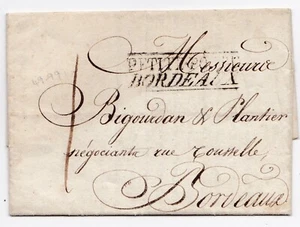 Messieurs
PETITE POSTE
BORDEAUX
Bigourdan & Plantier
négociants rue Rousselle,
Bordeaux